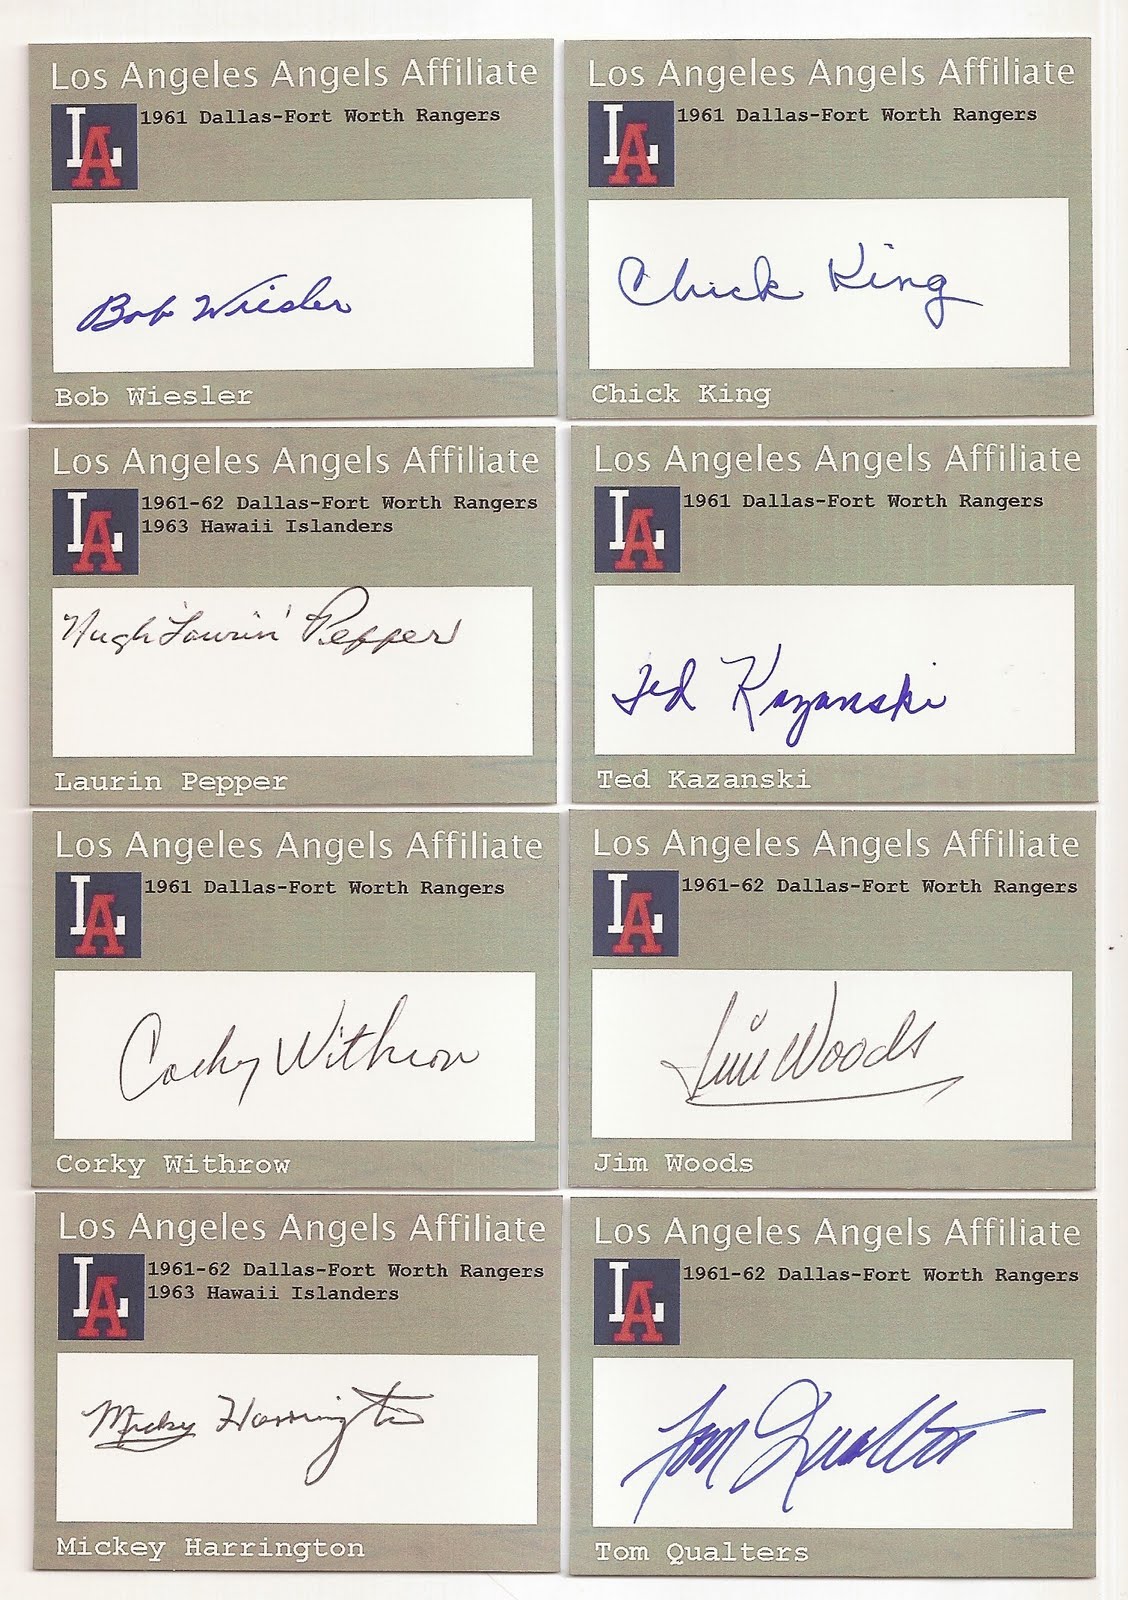 Los Angeles Angels Affiliate
LA
1961 Dallas-Fort Worth Rangers
Bob Wiesler
Bob Wiesler
Los Angeles Angels Affiliate
LA
1961 Dallas-Fort Worth Rangers
Chick King
Chick King
Los Angeles Angels Affiliate
LA
1961-62 Dallas-Fort Worth Rangers
1963 Hawaii Islanders
Hugh 'Laurin' Pepper
Laurin Pepper
Los Angeles Angels Affiliate
LA
1961 Dallas-Fort Worth Rangers
Ted Kazanski
Ted Kazanski
Los Angeles Angels Affiliate
LA
1961 Dallas-Fort Worth Rangers
Corky Withrow
Corky Withrow
Los Angeles Angels Affiliate
LA
1961-62 Dallas-Fort Worth Rangers
Jim Woods
Jim Woods
Los Angeles Angels Affiliate
LA
1961-62 Dallas-Fort Worth Rangers
1963 Hawaii Islanders
Micky Harrington
Mickey Harrington
Los Angeles Angels Affiliate
LA
1961-62 Dallas-Fort Worth Rangers
Tom Qualters
Tom Qualters